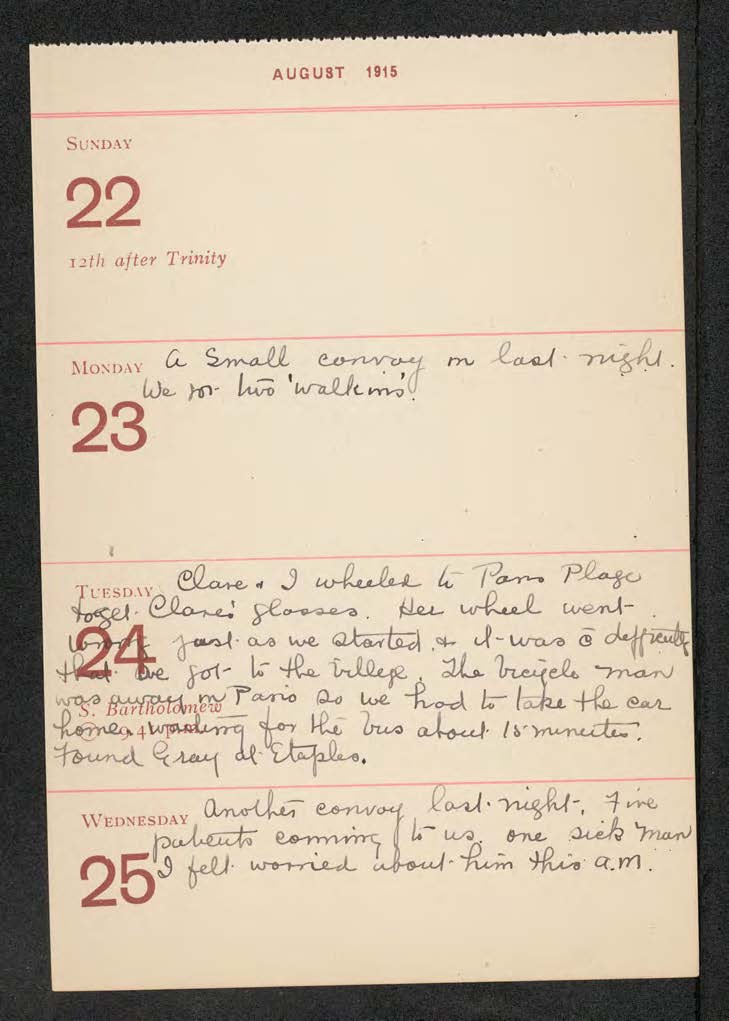 AUGUST 1915
SUNDAY
22
12th after Trinity
MONDAY
A Small convoy in last night.
We got two 'walk ins'.
23
TUESDAY
Clare & I wheeled to Paris Plage
to get Clare's glasses. Her wheel went
wrong just as we started & it was c̄ difficulty
24
that we got to the village. The bicycle man
was away in Paris so we had to take the car
S. Bartholomew
home, waiting for the bus about 15 minutes.
9.4 p.m.
Found Gray at Etaples.
WEDNESDAY
Another convoy last night, Five
patients coming to us, one sick man
25
I felt worried about him this a.m.